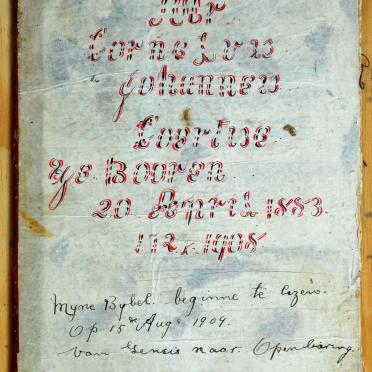 Cornelus
Johannes
Coertse
Ge Booren
20 April 1883.
1908
Myne Bybel beginne te lezen.
Op 15de Aug. 1909.
van Genesis naar Openbaring.